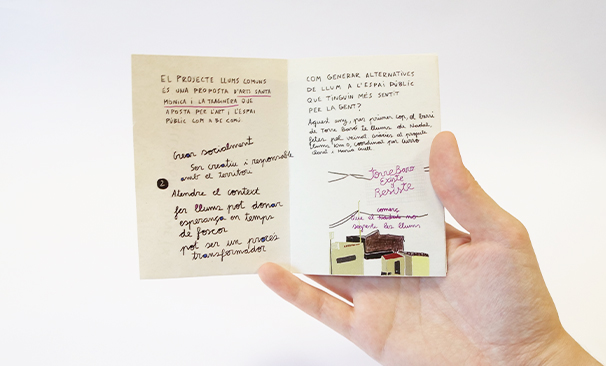 EL PROJECTE LLUMS COMUNS
ÉS UNA PROPOSTA D'ARTS SANTA
MÒNICA I LA TRAGINERA QUE
APOSTA PER L'ART I L'ESPAI
PÚBLIC COM A BÉ COMÚ
Crear socialment
Ser creatiu i responsable
amb el territori
2
Atendre el context
fer llums pot donar
esperança en temps
de foscor
pot ser un procés
transformador
COM GENERAR ALTERNATIVES
DE LLUM A L'ESPAI PÚBLIC
QUE TINGUIN MÉS SENTIT
PER LA GENT?
Aquest any, per primer cop, el barri
de Torre Baró té llums de Nadal,
fetes pel veïnat gràcies al projecte
llums km 0, coordinat per Curro
Claret i Maria
Torre Baró
Existe
y
Resiste
comerç
que el no
segresti les llums